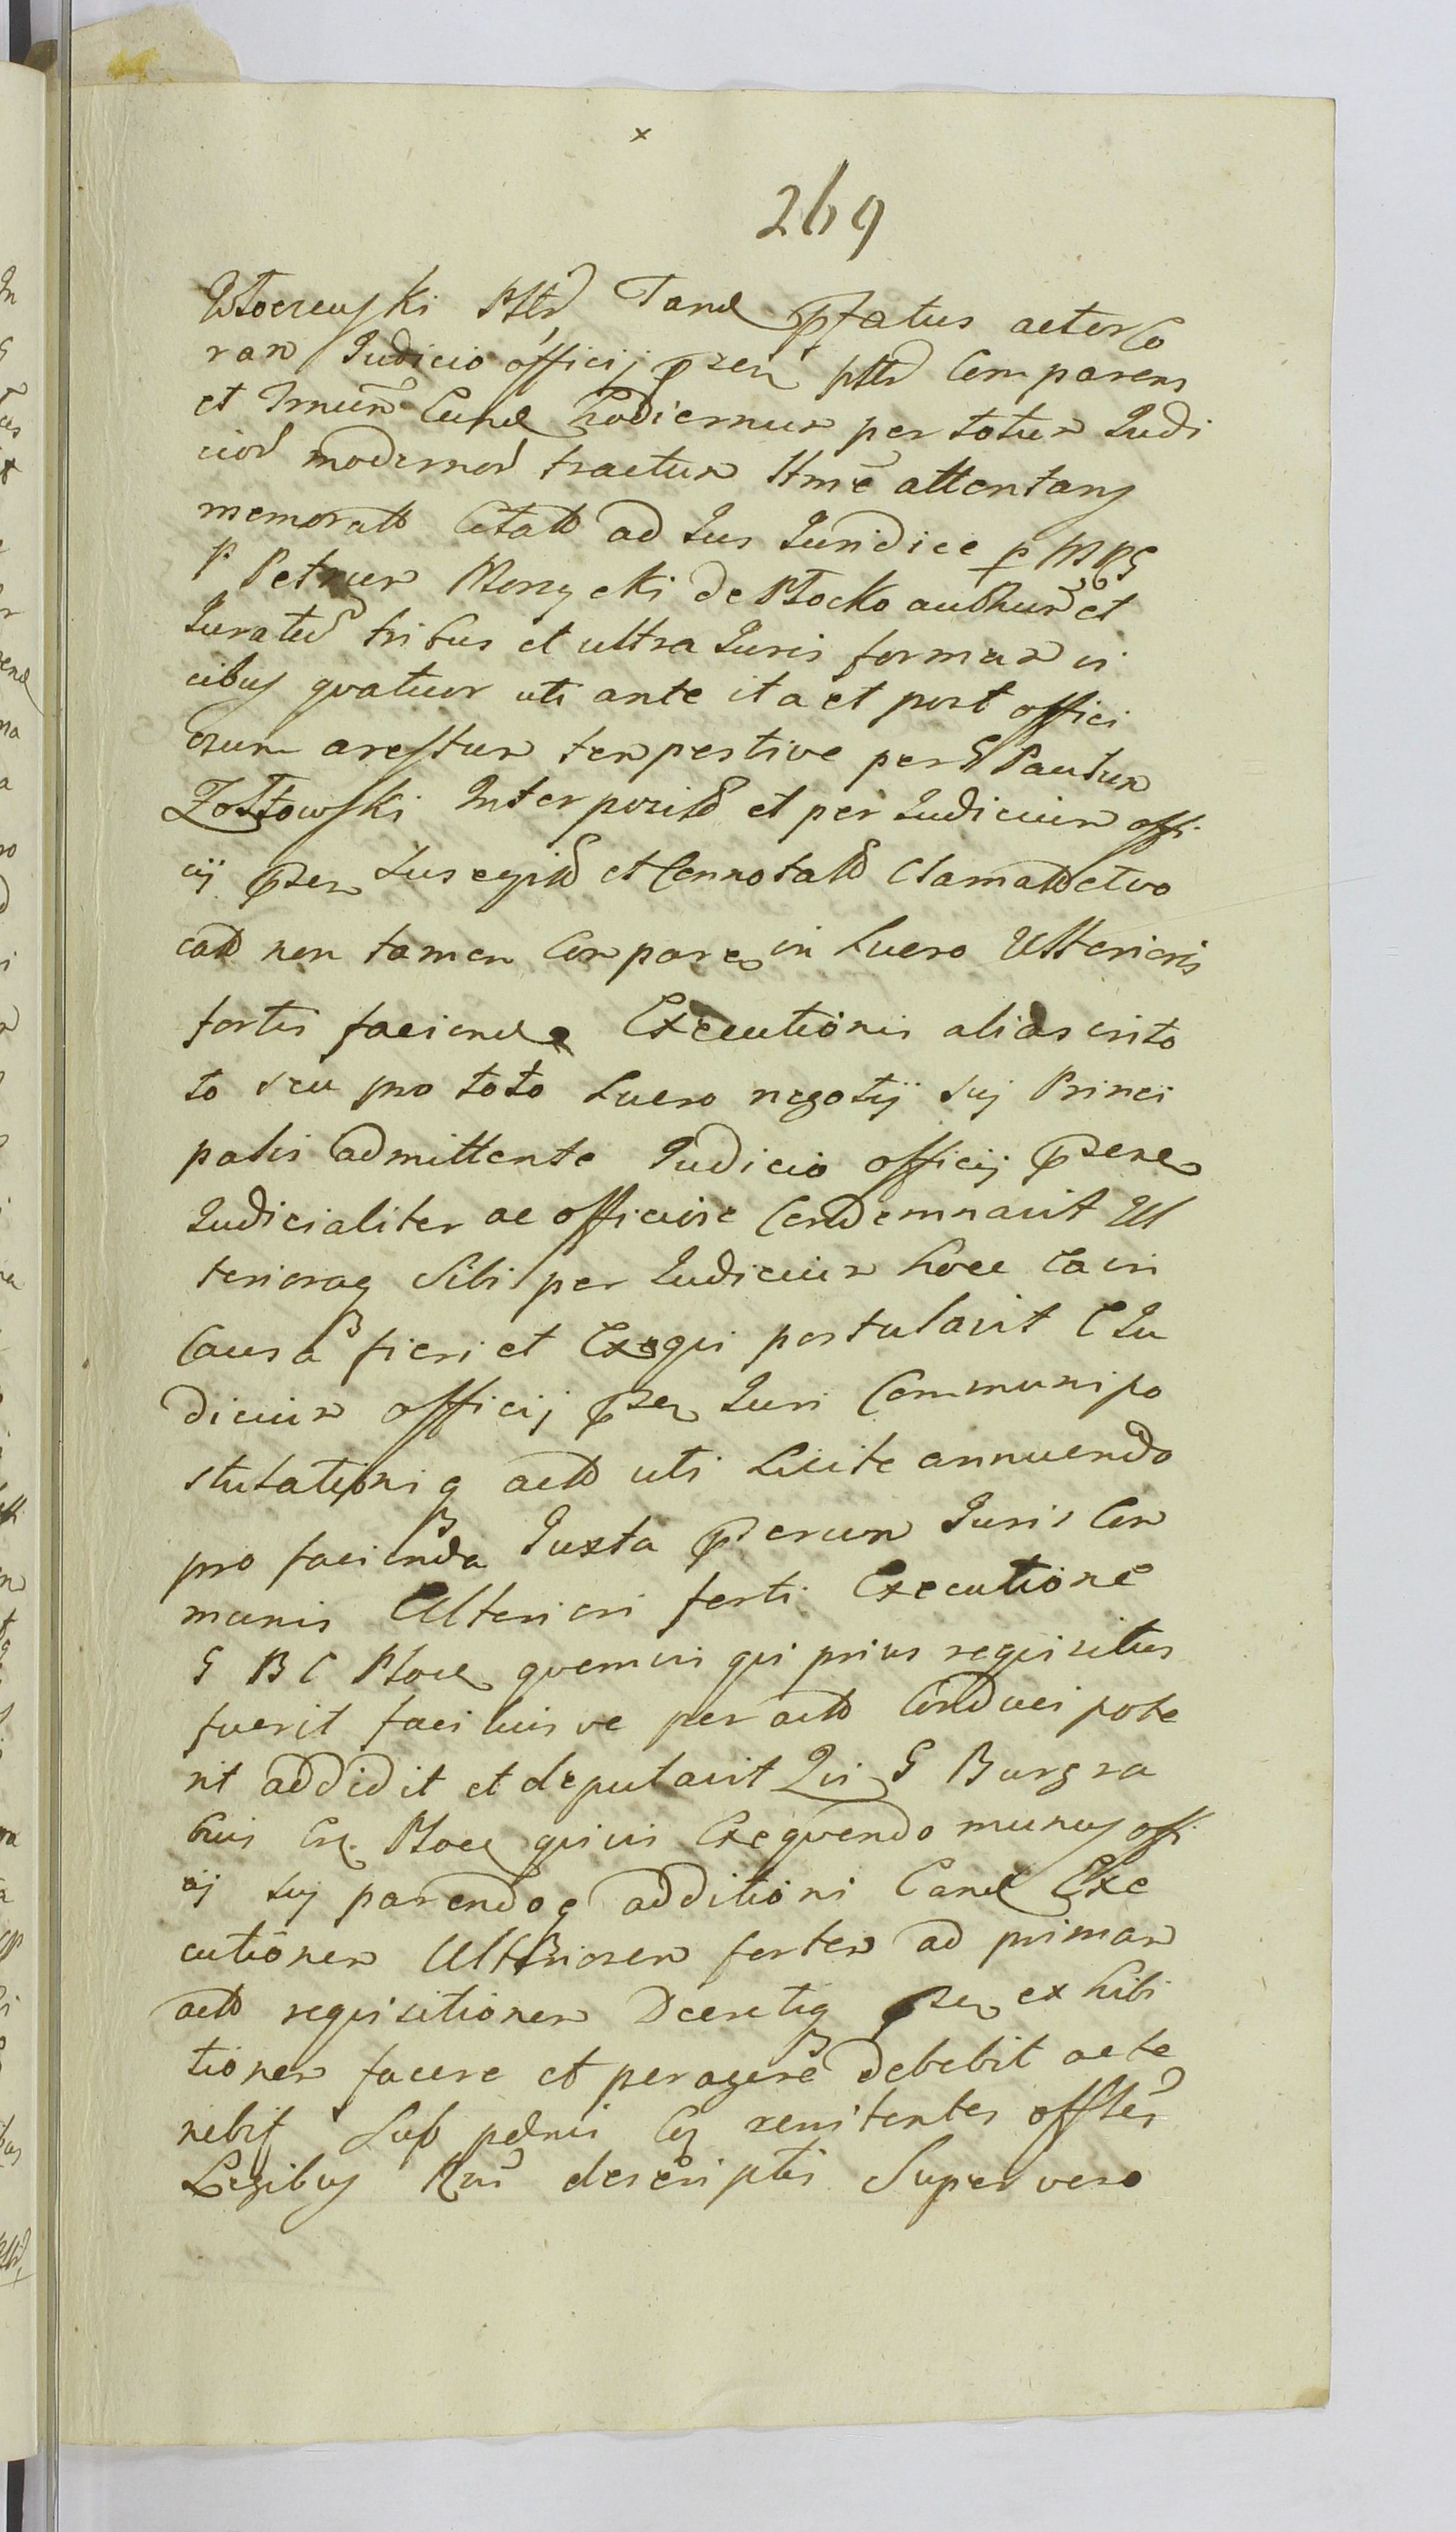 x
269
Włoczewski Pttr Tand pfatus actor Co
ram Judicio officij pzen pttr Comparens
et Trnum Eund hodiernum per totum Judi
cior modernor tractum ttme attentans
memoratt Citatt ad Jus Juridice p M P G
P Petrum Monycki de Płocko authum et
Juratu tribus et ultra Juris formam vi
cibus quatuor uti ante ita et post offici
osum arestum tempestive per G Pautum
Zołtowski Interposit et per Judicium offi
cij pzen Suscepit et Connotatt Clamatt et vo
catt non tamen Compare in Lucro Ulterioris
fortis faciend Executionis alias in to
to seu pro toto Lucro negotij sui Princi
palis admittente Judicio officij pzene
Judicialiter ac officiose Condemnavit Ul
terioraq Sibi per Judicium hocce ea in
Causa fieri et Exequi postulavit E Ju
dicium officij pzen Juri Communi po
stulationi q actt uti Licite annuendo
pro facienda Juxta pzerum Juris Com
munis Ulteriori forti Executione
G B C Ploce quemvis qui prius requisitus
fuerit faciliusve per actt Conduci pote
rit addidit et deputavit Qui G Burgra
bius C Ploce quivis Exequendo munus offi
cij sui parendo q additioni Eand Exe
cutionem Ulteriorem fortem ad primam
actt requisitionem Decretiq pzen exhibi
tionem facere et peragere debebit ac te
nebit Sub penis renitentes offles
Legibus descriptis Super vero